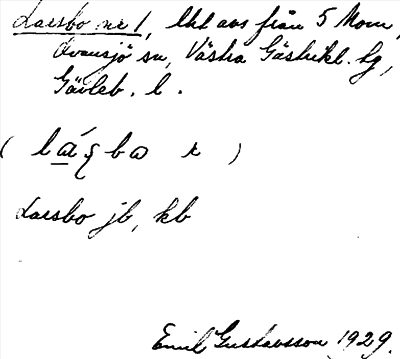 Larsbo nr 1, lht avs från 5 Mom,
Ovansjö sn, Västra Gästrikl. hg,
Gävleb. l.
Larsbo jb, kb
Emil Gustavsson 1929.